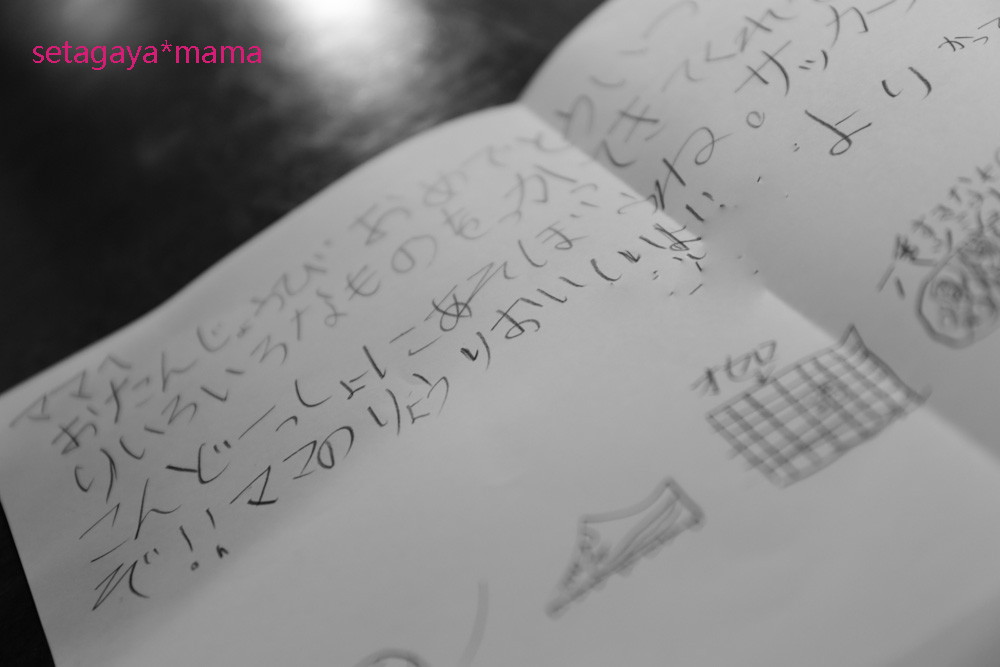 setagaya*mama
ママへ
おたんじょうび おめでとう いつ
りいろいろなものを かってきてくれ
こんどいっしょに あそぼうね。サッカー
ぞ!! ママのりょうりおいしいよ
より
かって
オセロ